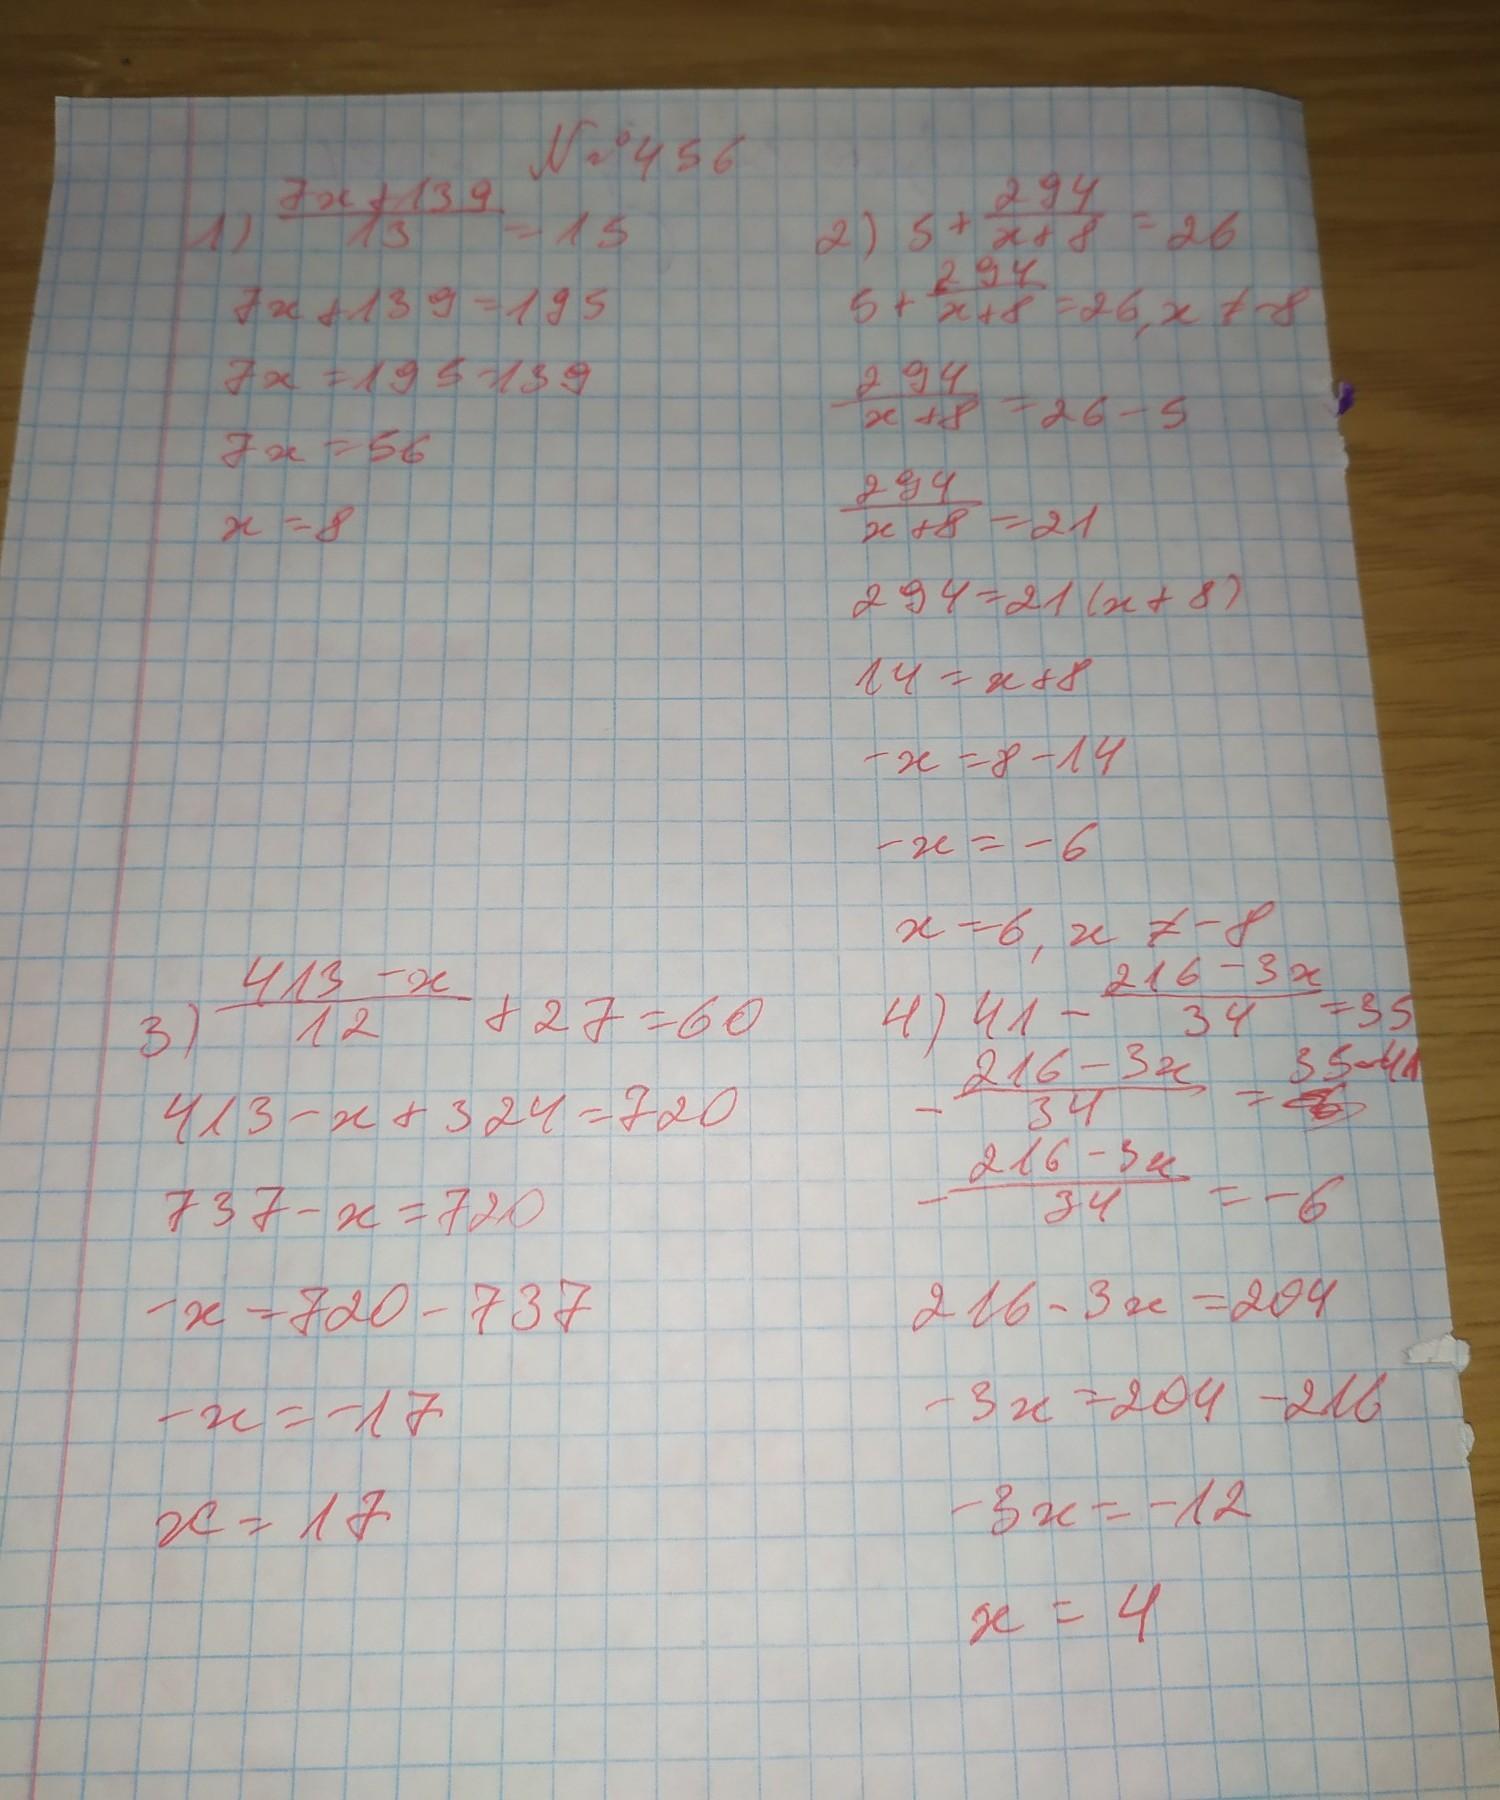 №456
1) (7x+139)/13 = 15
7x+139=195
7x=195-139
7x=56
x=8
2) 5+294/(x+8)=26
5+294/(x+8)=26, x≠-8
294/(x+8)=26-5
294/(x+8)=21
294=21(x+8)
14=x+8
-x=8-14
-x=-6
x=6, x≠-8
3) (413-x)/12+27=60
413-x+324=720
737-x=720
-x=720-737
-x=-17
x=17
4) 41-(216-3x)/34=35
-(216-3x)/34=35-41
-(216-3x)/34=-6
216-3x=204
-3x=204-216
-3x=-12
x=4